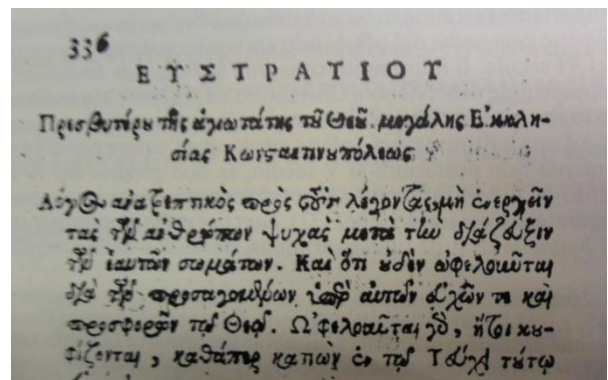 336
ΕΥΣΤΡΑΤΙΟΥ
Πρεσβυτέρου τῆς ἁγιωτάτης τοῦ Θεοῦ μεγάλης Ἐκκλη-
σίας Κωνσταντινουπόλεως
Λόγος ἀνατρεπτικὸς πρὸς τοὺς λέγοντας, μὴ ἐνεργεῖν
τὰς τῶν ἀνθρώπων ψυχὰς μετὰ τὴν διάζευξιν
τῶν ἑαυτῶν σωμάτων. Καὶ ὅτι οὐδὲν ὠφελοῦνται
διὰ τῶν προσαγομένων ὑπὲρ αὐτῶν εὐχῶν τε καὶ
προσφορῶν τῷ Θεῷ. Ὠφελοῦνται γὸ, ἤτοι κου-
φίζονται, καθάπερ ἐν τῷ τούτῳ